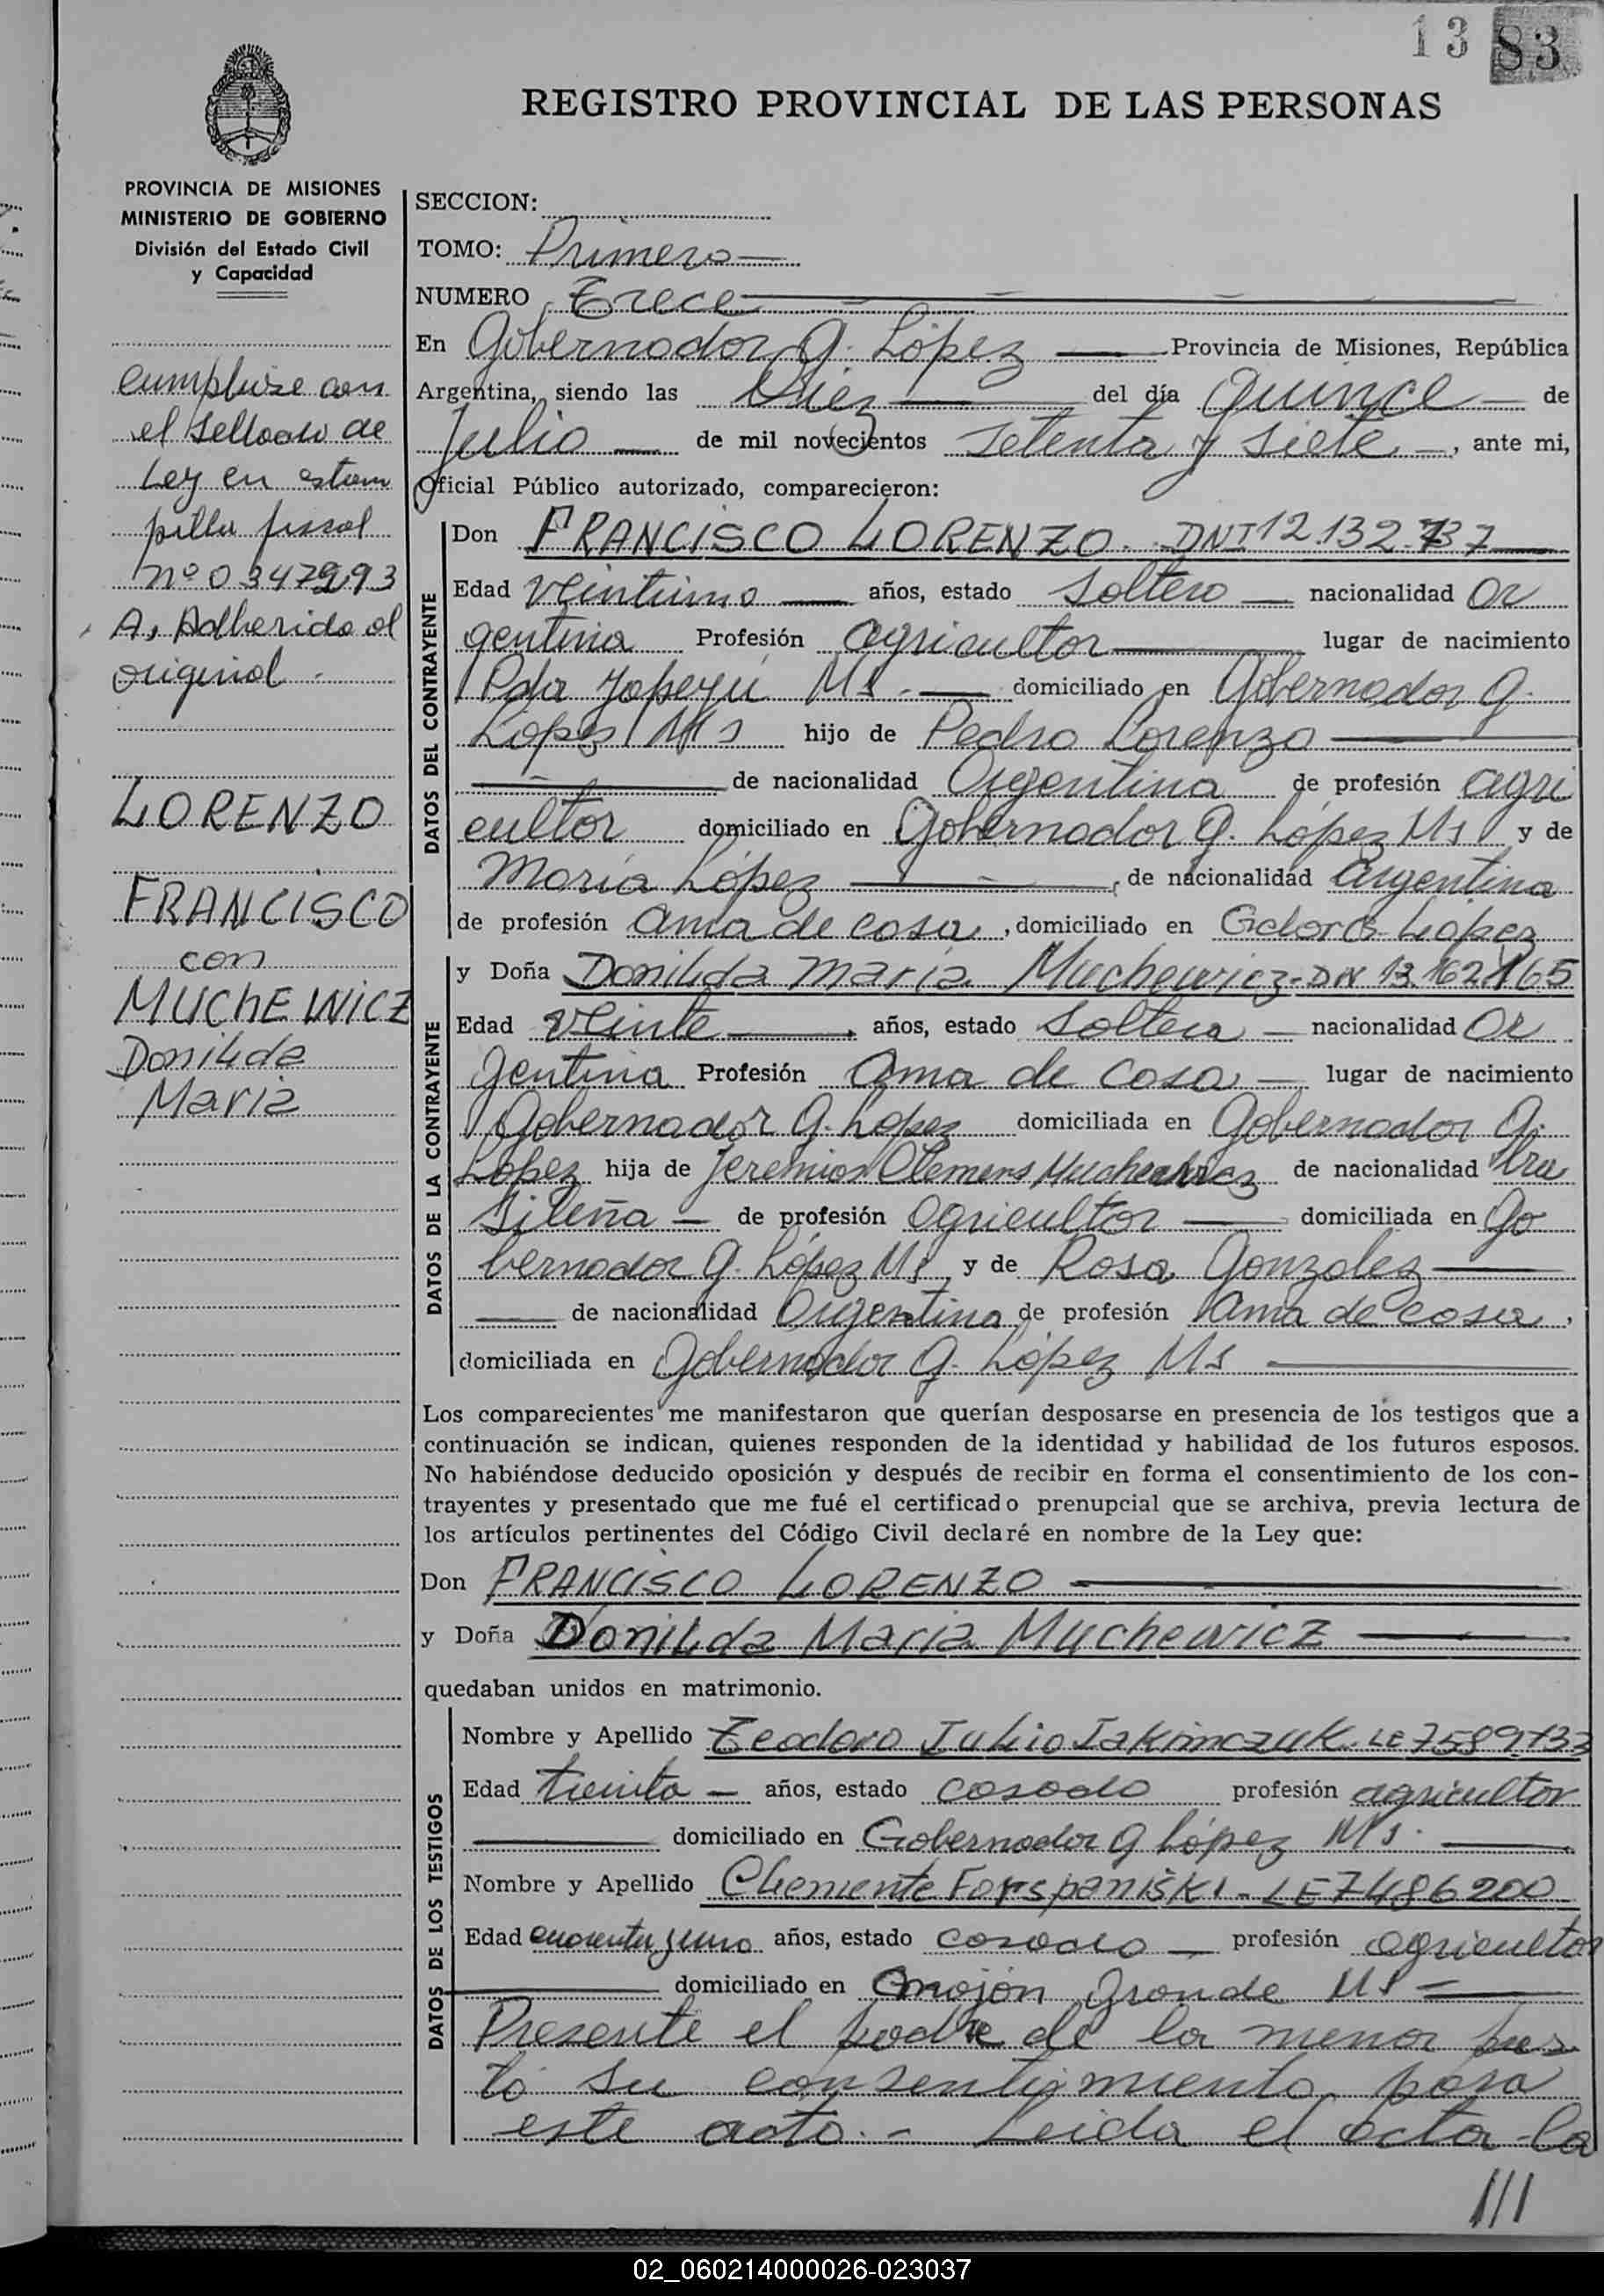 13 83
REGISTRO PROVINCIAL DE LAS PERSONAS
PROVINCIA DE MISIONES
MINISTERIO DE GOBIERNO
División del Estado Civil
y Capacidad
cumplise con
el sellado de
Ley en estam
pilla fiscal
nº 03472293
A, Adherida al
original.
LORENZO
FRANCISCO
con
MUCHEWICZ
Donilda
Maria
SECCION:
TOMO: Primero
NUMERO Trece
En Gobernador G. López Provincia de Misiones, República
Argentina, siendo las Diez del día Quince de
Julio de mil novecientos setenta y siete, ante mi,
Oficial Público autorizado, comparecieron:
DATOS DEL CONTRAYENTE
Don FRANCISCO LORENZO. DNI 12.132.737
Edad veintiuno años, estado Soltero nacionalidad ar
gentina Profesión agricultor lugar de nacimiento
Pda Yapeyú Ms. domiciliado en Gobernador G.
López Ms hijo de Pedro Lorenzo
de nacionalidad Argentina de profesión agri
cultor domiciliado en Gobernador G. López Ms y de
María López, de nacionalidad argentina
de profesión ama de casa, domiciliado en Gdor G. Lopez
DATOS DE LA CONTRAYENTE
y Doña Donilda Maria Muchewicz-DNI 13.162.165
Edad Veinte años, estado Soltera nacionalidad ar
gentina Profesión Ama de casa lugar de nacimiento
Gobernador G. Lopez domiciliada en Gobernador G.
López hija de Jeremias Clemens Muchewicz de nacionalidad bra
sileña de profesión agricultor domiciliada en Go
bernador G. López Ms y de Rosa Gonzalez
de nacionalidad Argentina de profesión Ama de casa,
domiciliada en Gobernador G. López Ms
Los comparecientes me manifestaron que querían desposarse en presencia de los testigos que a
continuación se indican, quienes responden de la identidad y habilidad de los futuros esposos.
No habiéndose deducido oposición y después de recibir en forma el consentimiento de los con-
trayentes y presentado que me fué el certificado prenupcial que se archiva, previa lectura de
los artículos pertinentes del Código Civil declaré en nombre de la Ley que:
Don FRANCISCO LORENZO
y Doña Donilda Maria Muchewicz
quedaban unidos en matrimonio.
DATOS DE LOS TESTIGOS
Nombre y Apellido Teodoro Julio Iakimczuk LE 7589733
Edad treinta años, estado casado profesión agricultor
domiciliado en Gobernador G López Ms.
Nombre y Apellido Clemente Forspaniski-LE 7486200
Edad cuarenta y uno años, estado casado profesión agricultor
domiciliado en mojón Grande Ms
Presente el padre de la menor pres
tó su consentimiento para
este acto.- Leída el acta la
///
02_060214000026-023037